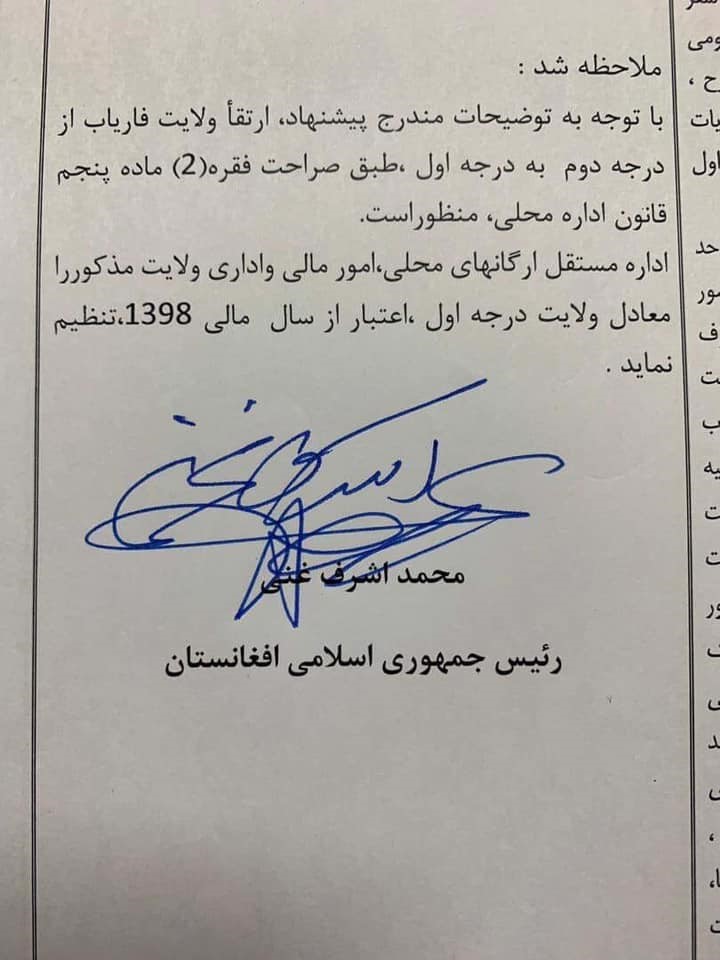 ملاحظه شد :
با توجه به توضیحات مندرج پیشنهاد، ارتقأ ولایت فاریاب از
درجه دوم به درجه اول ،طبق صراحت فقره(2) ماده پنجم
قانون اداره محلی، منظوراست.
اداره مستقل ارگانهای محلی،امور مالی واداری ولایت مذکوررا
معادل ولایت درجه اول ،اعتبار از سال مالی 1398،تنظیم
نماید .
محمد اشرف غنی
رئیس جمهوری اسلامی افغانستان